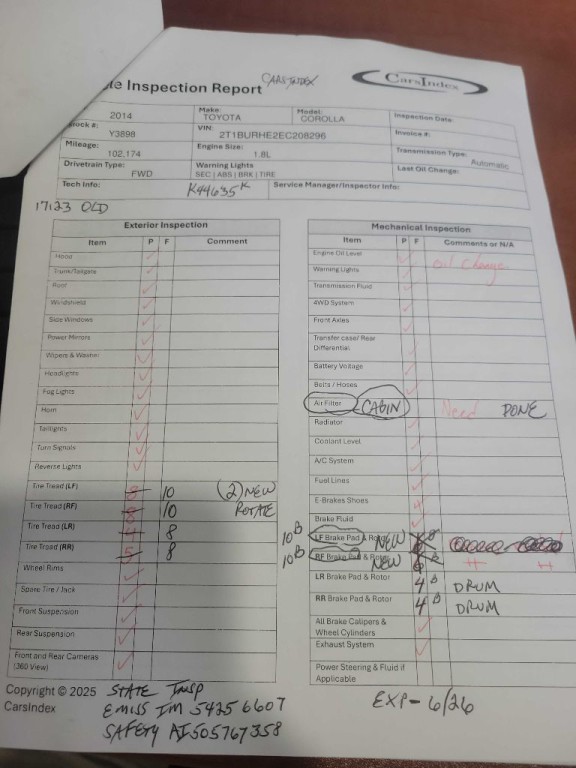 le Inspection Report CARS-INDEX
CarsIndex
2014 Make: TOYOTA Model: COROLLA Inspection Date:
Stock #: Y3898 VIN: 2T1BURHE2EC208296 Invoice #:
Mileage: 102,174 Engine Size: 1.8L Transmission Type: Automatic
Drivetrain Type: FWD Warning Lights SEC | ABS | BRK | TIRE Last Oil Change:
Tech Info: K44635K Service Manager/Inspector Info:
17123 OLD
Exterior Inspection
Item P F Comment
Hood
Trunk/Tailgate
Roof
Windshield
Side Windows
Power Mirrors
Wipers & Washer
Headlights
Fog Lights
Horn
Taillights
Turn Signals
Reverse Lights
Tire Tread (LF) 10 (2) NEW
Tire Tread (RF) 10 ROTATE
Tire Tread (LR) 8
Tire Tread (RR) 8
Wheel Rims
Spare Tire / Jack
Front Suspension
Rear Suspension
Front and Rear Cameras
(360 View)
Mechanical Inspection
Item P F Comments or N/A
Engine Oil Level Oil Change
Warning Lights
Transmission Fluid
4WD System
Front Axles
Transfer case/ Rear
Differential
Battery Voltage
Belts / Hoses
Air Filter CABIN Need DONE
Radiator
Coolant Level
A/C System
Fuel Lines
E-Brakes Shoes 4
Brake Fluid
10 B LF Brake Pad & Rotor NEW
10 B RF Brake Pad & Rotor NEW
LR Brake Pad & Rotor 4 B DRUM
RR Brake Pad & Rotor 4 B DRUM
All Brake Calipers &
Wheel Cylinders
Exhaust System
Power Steering & Fluid if
Applicable
Copyright © 2025
CarsIndex
STATE INSP
EMISS IM 5425 6607
SAFETY AI505767358
EXP- 6/26